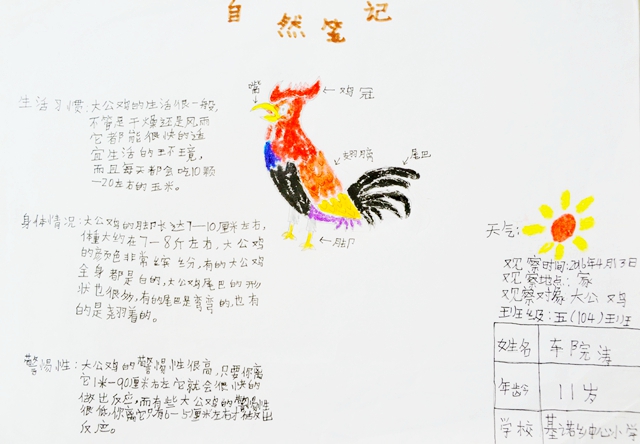 自然笔记
嘴
鸡冠
翅膀
尾巴
脚
生活习惯:大公鸡的生活很一般,
不管是干燥还是风雨
它都能很快的适
宜生活的环境,
而且每天都会吃10颗
—20左右的玉米。
身体情况:大公鸡的脚长达7—10厘米左右,
体重大约在7—8斤左右,大公鸡
的颜色非常缤纷,有的大公鸡
全身都是白的,大公鸡尾巴的形
状也很多,有的尾巴是弯弯的,也有
的是翘着的。
警惕性:大公鸡的警惕性很高,只要你离
它1米—90厘米左右它就会很快的
做出反应,而有些大公鸡的警惕性
很低,你离它只有6—5厘米左右才做出
反应。
天气:
观察时间:2016年4月13日
观察地点:家
观察对象 大公鸡
班级:五(104)班
姓名 车院涛
年龄 11岁
学校 基诺乡中心小学